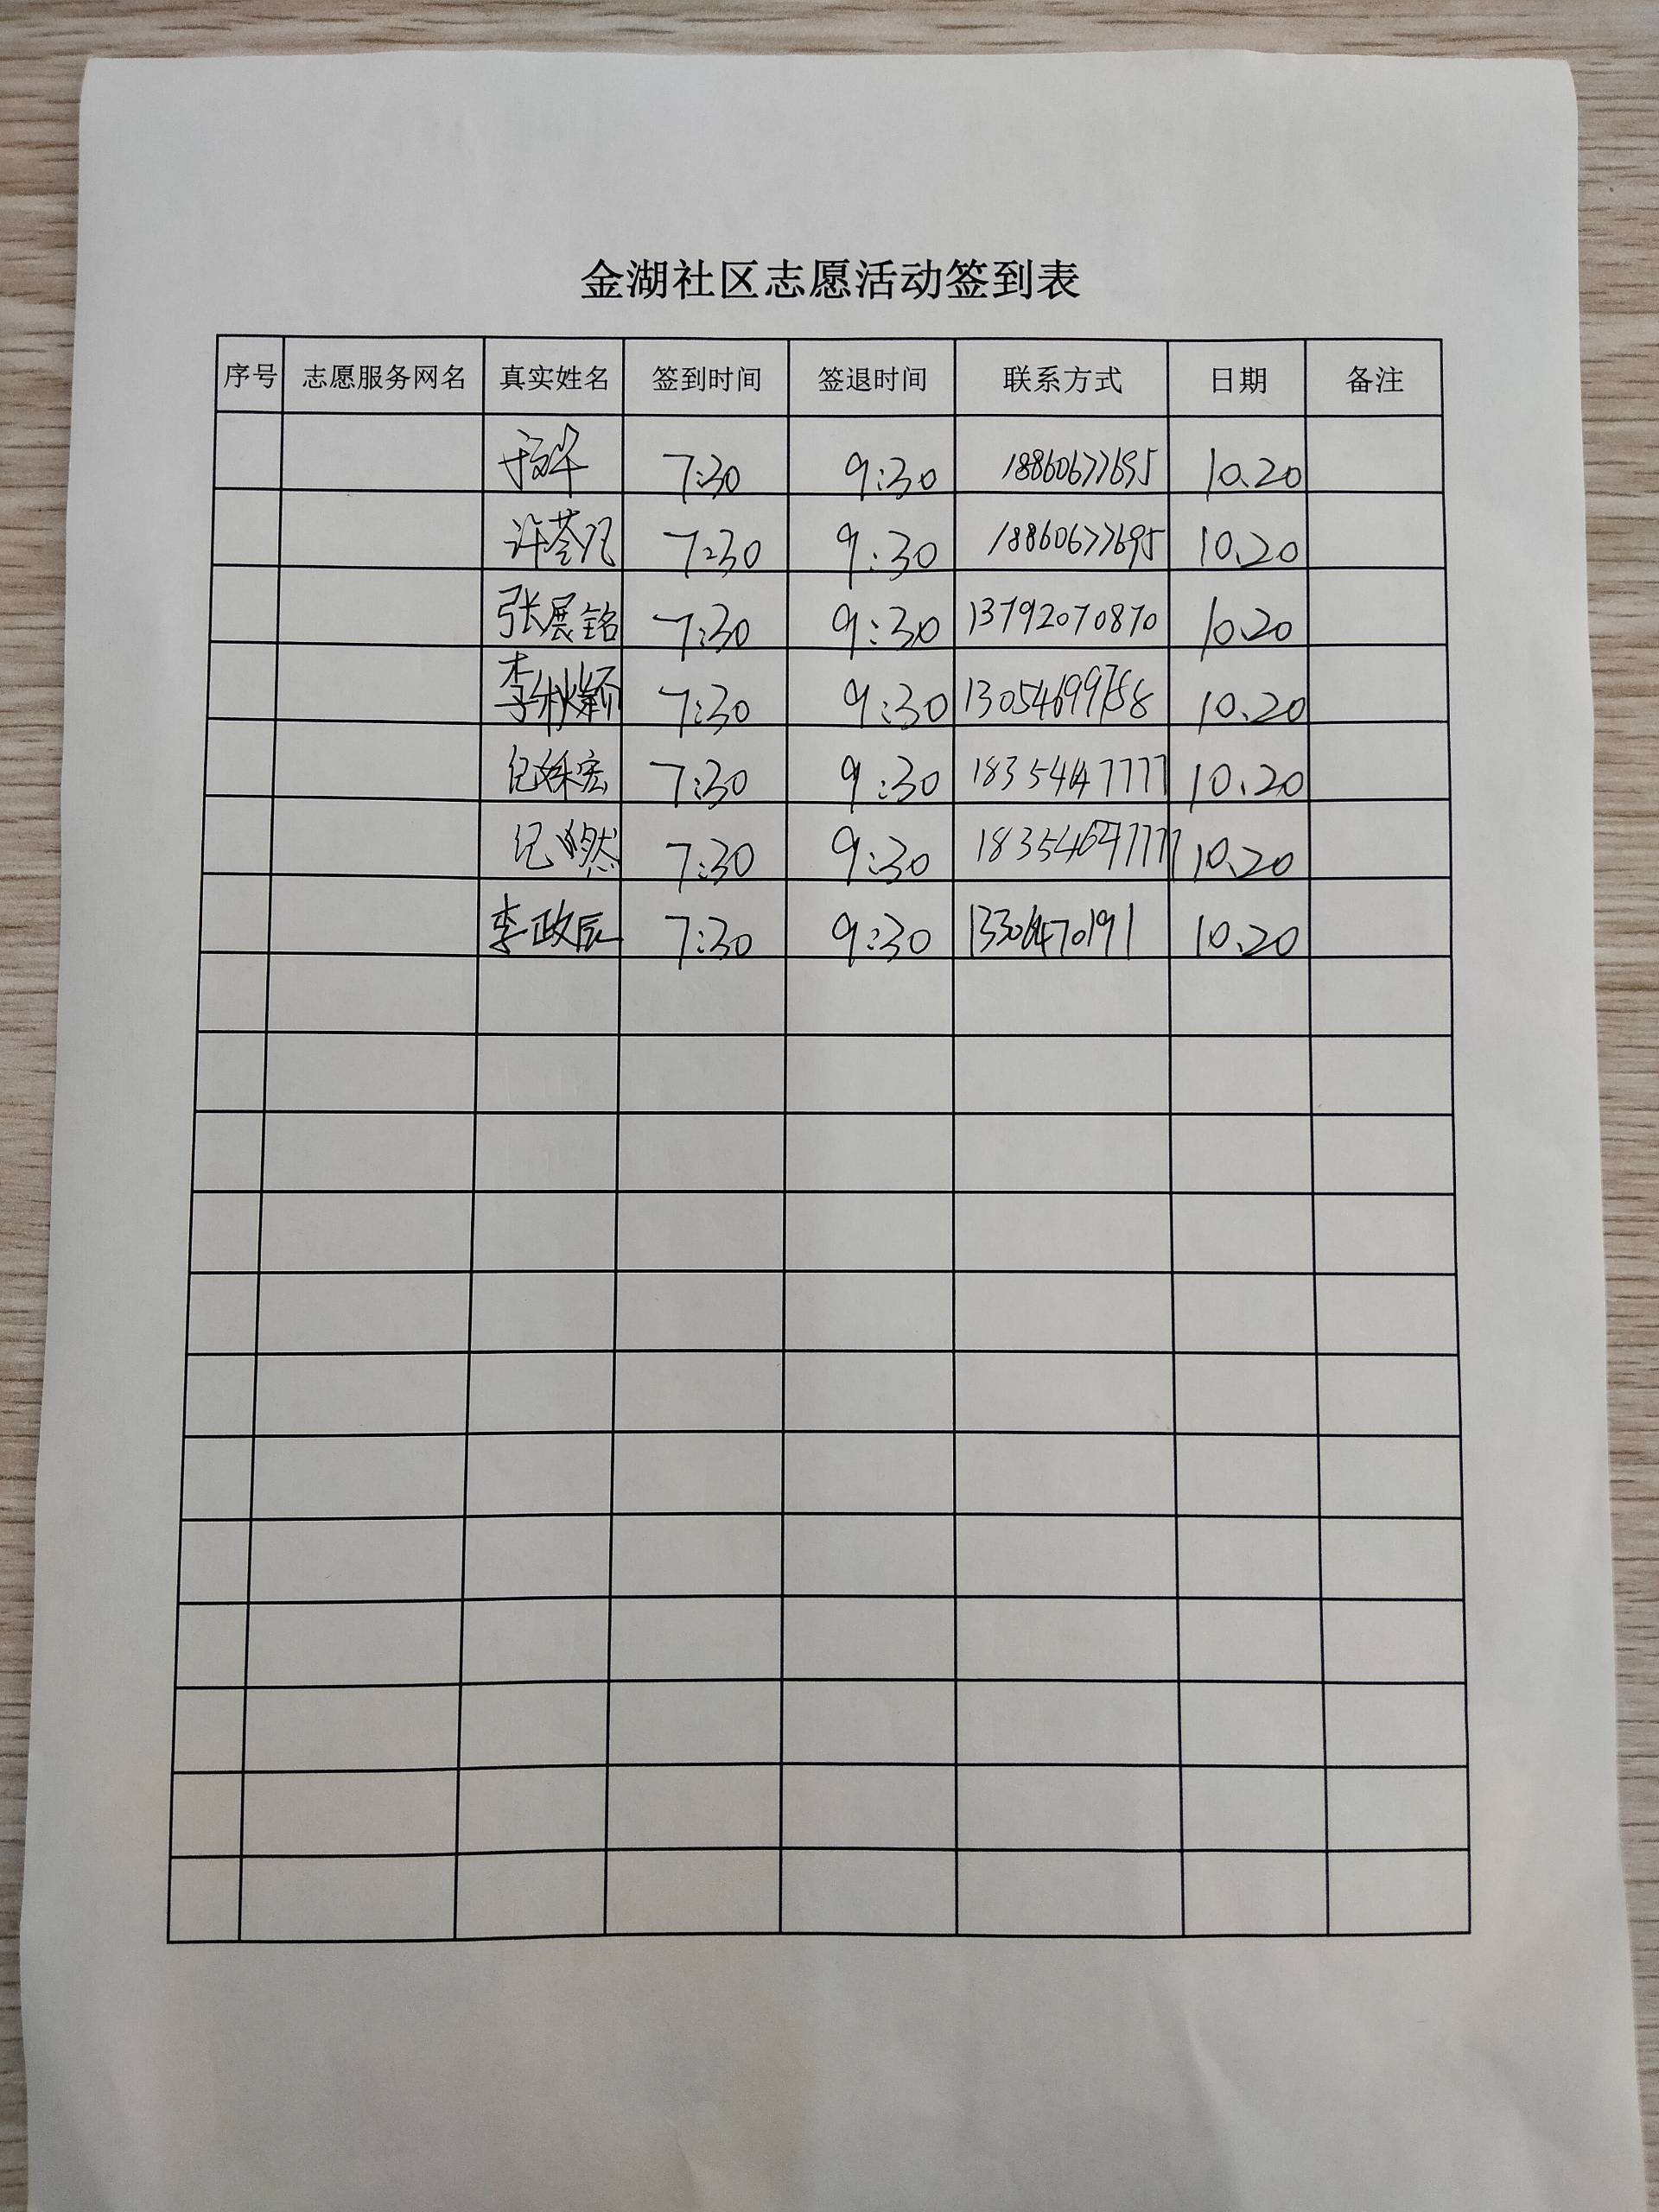 金湖社区志愿活动签到表
序号 志愿服务网名 真实姓名 签到时间 签退时间 联系方式 日期 备注
7:30 9:30 18860677695 10.20
许荟凡 7:30 9:30 18860677695 10.20
张展铭 7:30 9:30 13792070870 10.20
李秋颖 7:30 9:30 10.20
纪姝宏 7:30 9:30 10.20
纪 然 7:30 9:30 10.20
李政辰 7:30 9:30 10.20